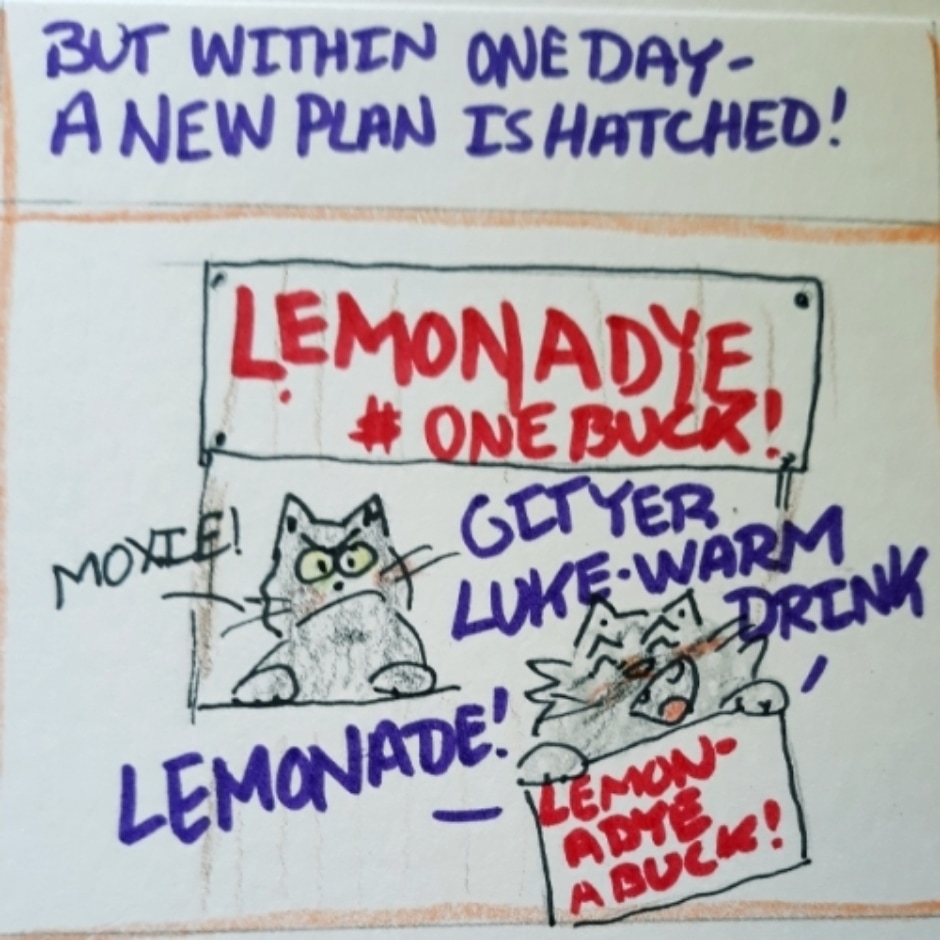 BUT WITHIN ONE DAY-
A NEW PLAN IS HATCHED!
LEMONADYE
# ONE BUCK!
MOXIE!
GIT YER
LUKE-WARM
DRINK
LEMONADE!
LEMON-
ADYE
A BUCK!